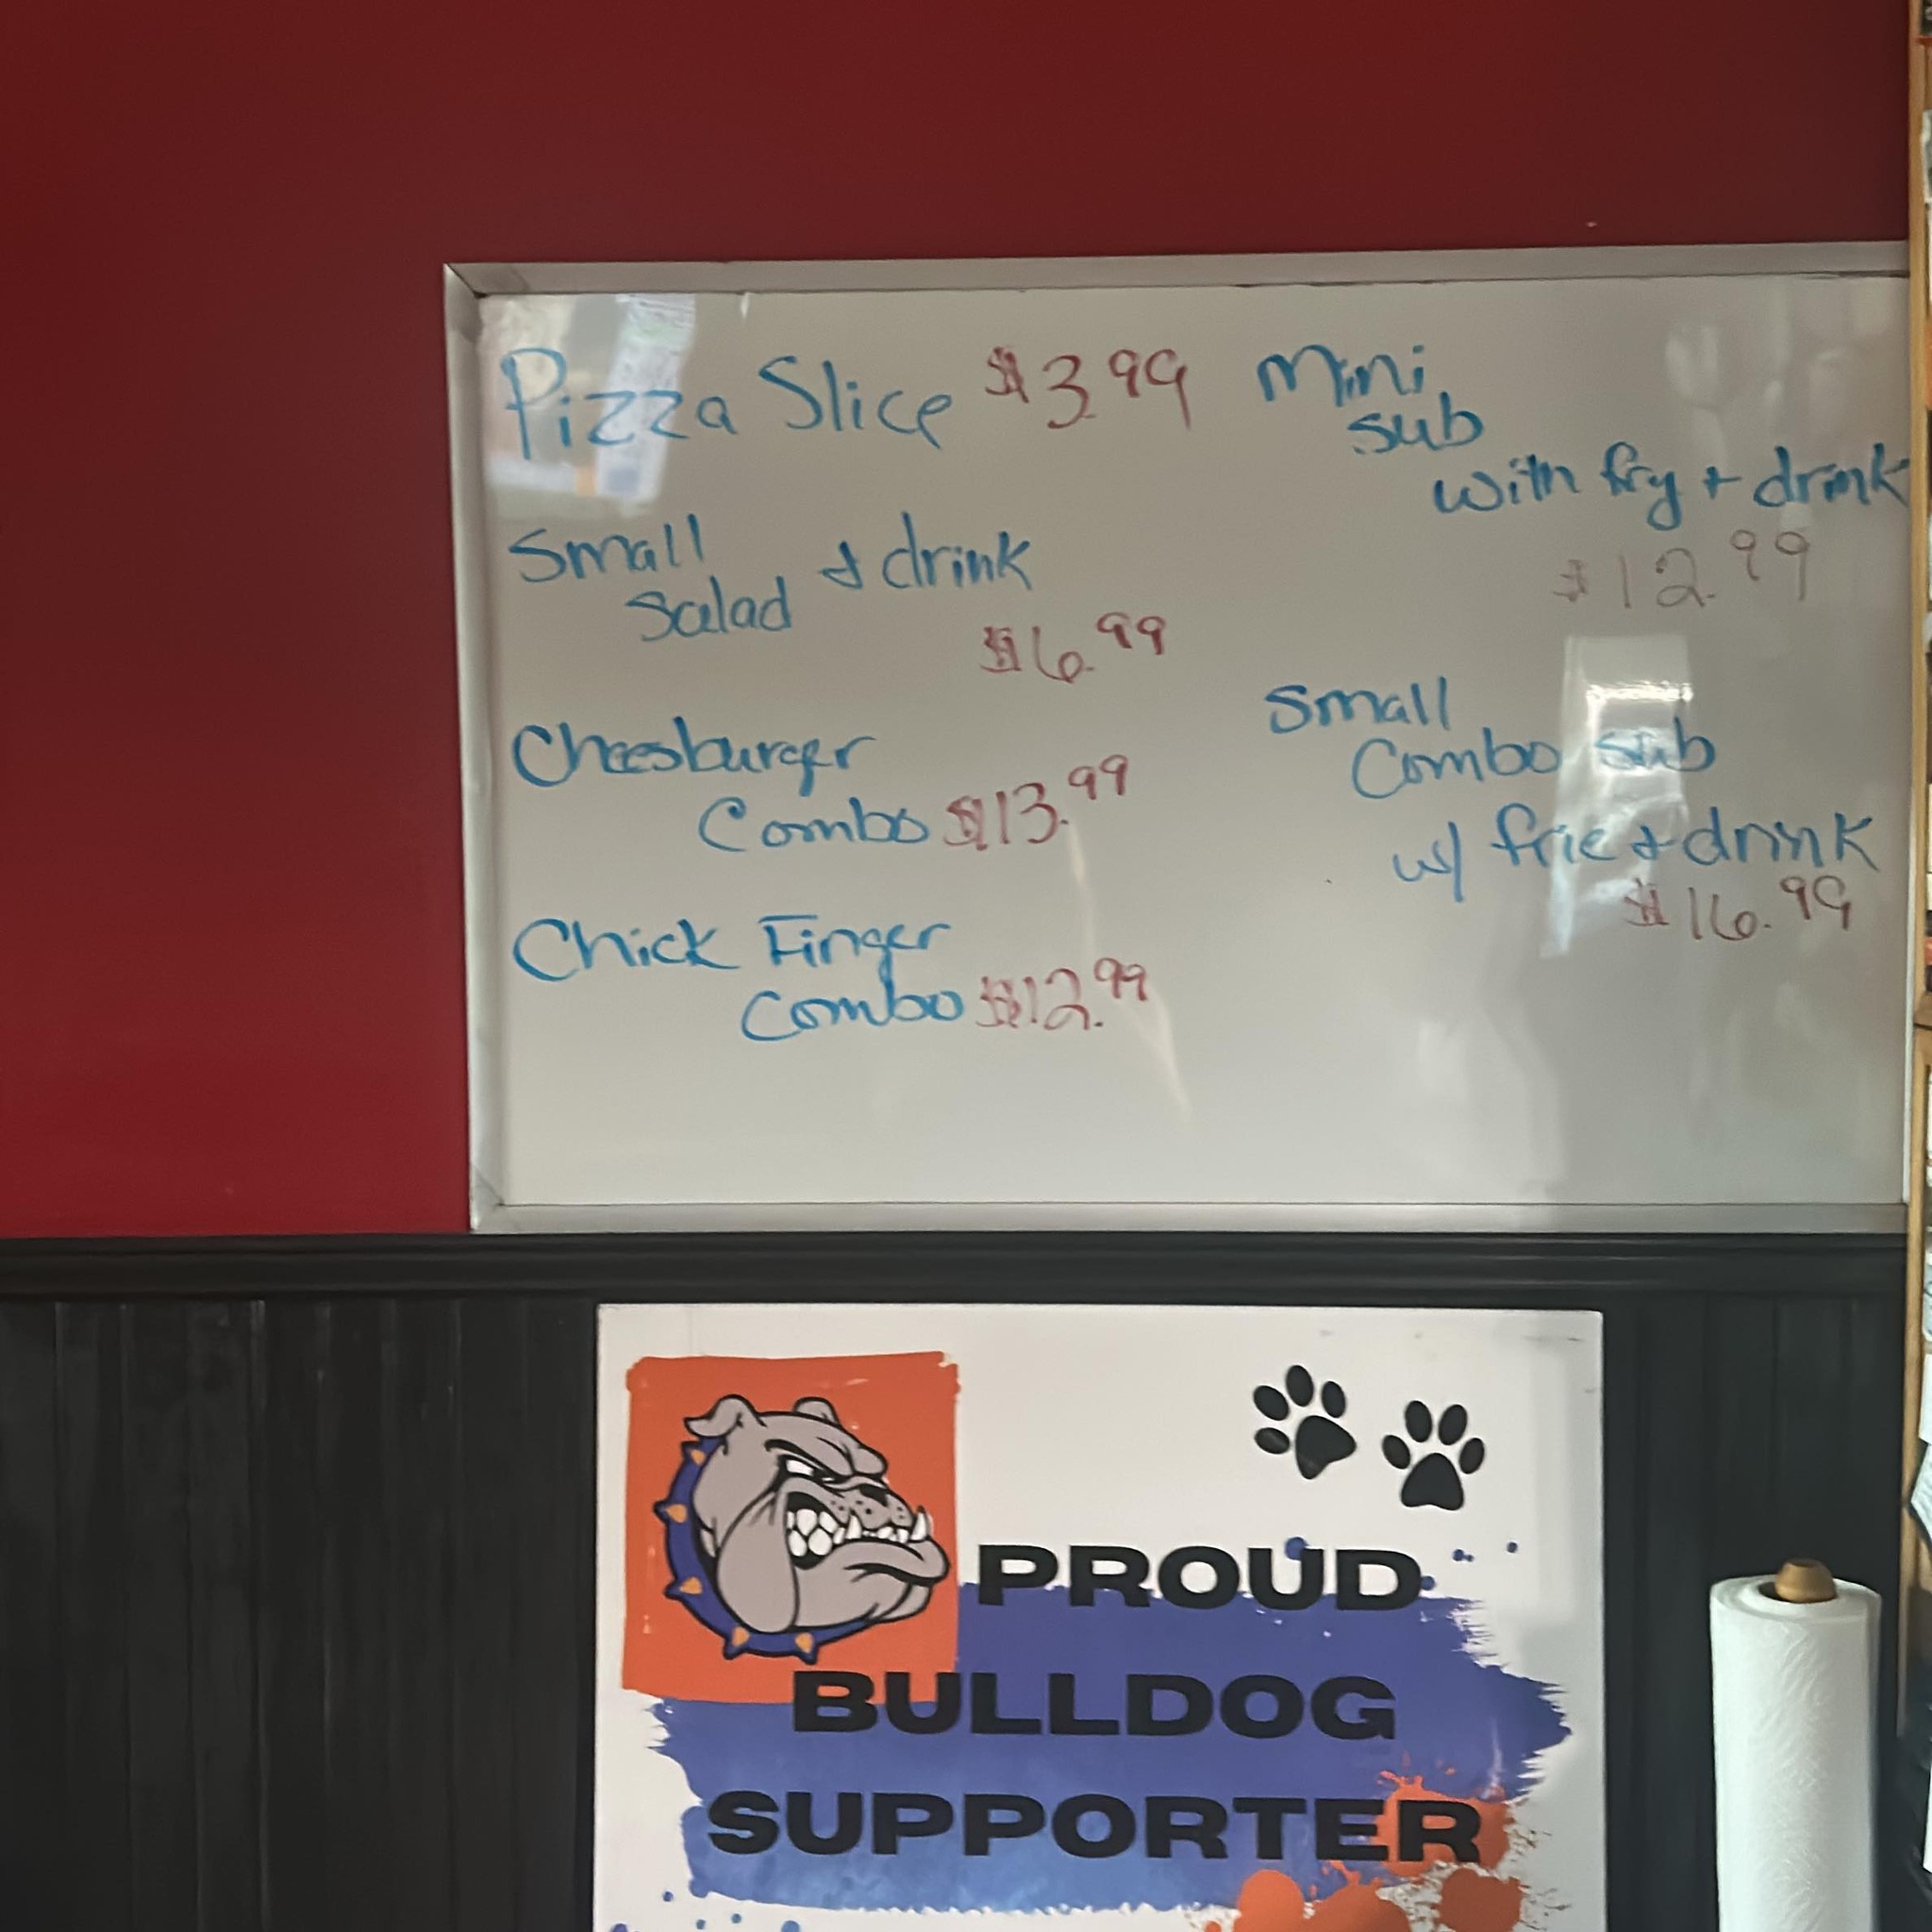 Pizza Slice $3.99
Small
Salad & drink
$6.99
Cheesburger
Combo $13.99
Chick Finger
Combo $12.99
Mini
sub
with fry + drink
$12.99
Small
Combo sub
w/ frie & drink
$16.99
PROUD
BULLDOG
SUPPORTER